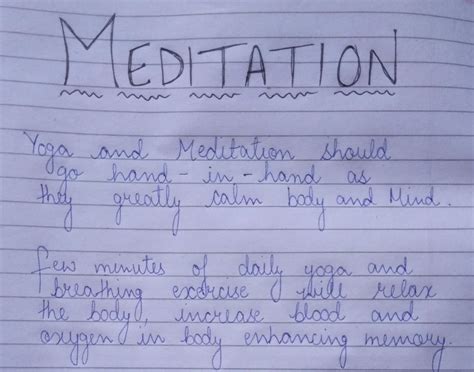 MEDITATION
Yoga and Meditation should
go hand-in-hand as
they greatly calm body and Mind.
few minutes of daily yoga and
breathing exercise will relax
the body, increase blood and
oxygen in body enhancing memory.